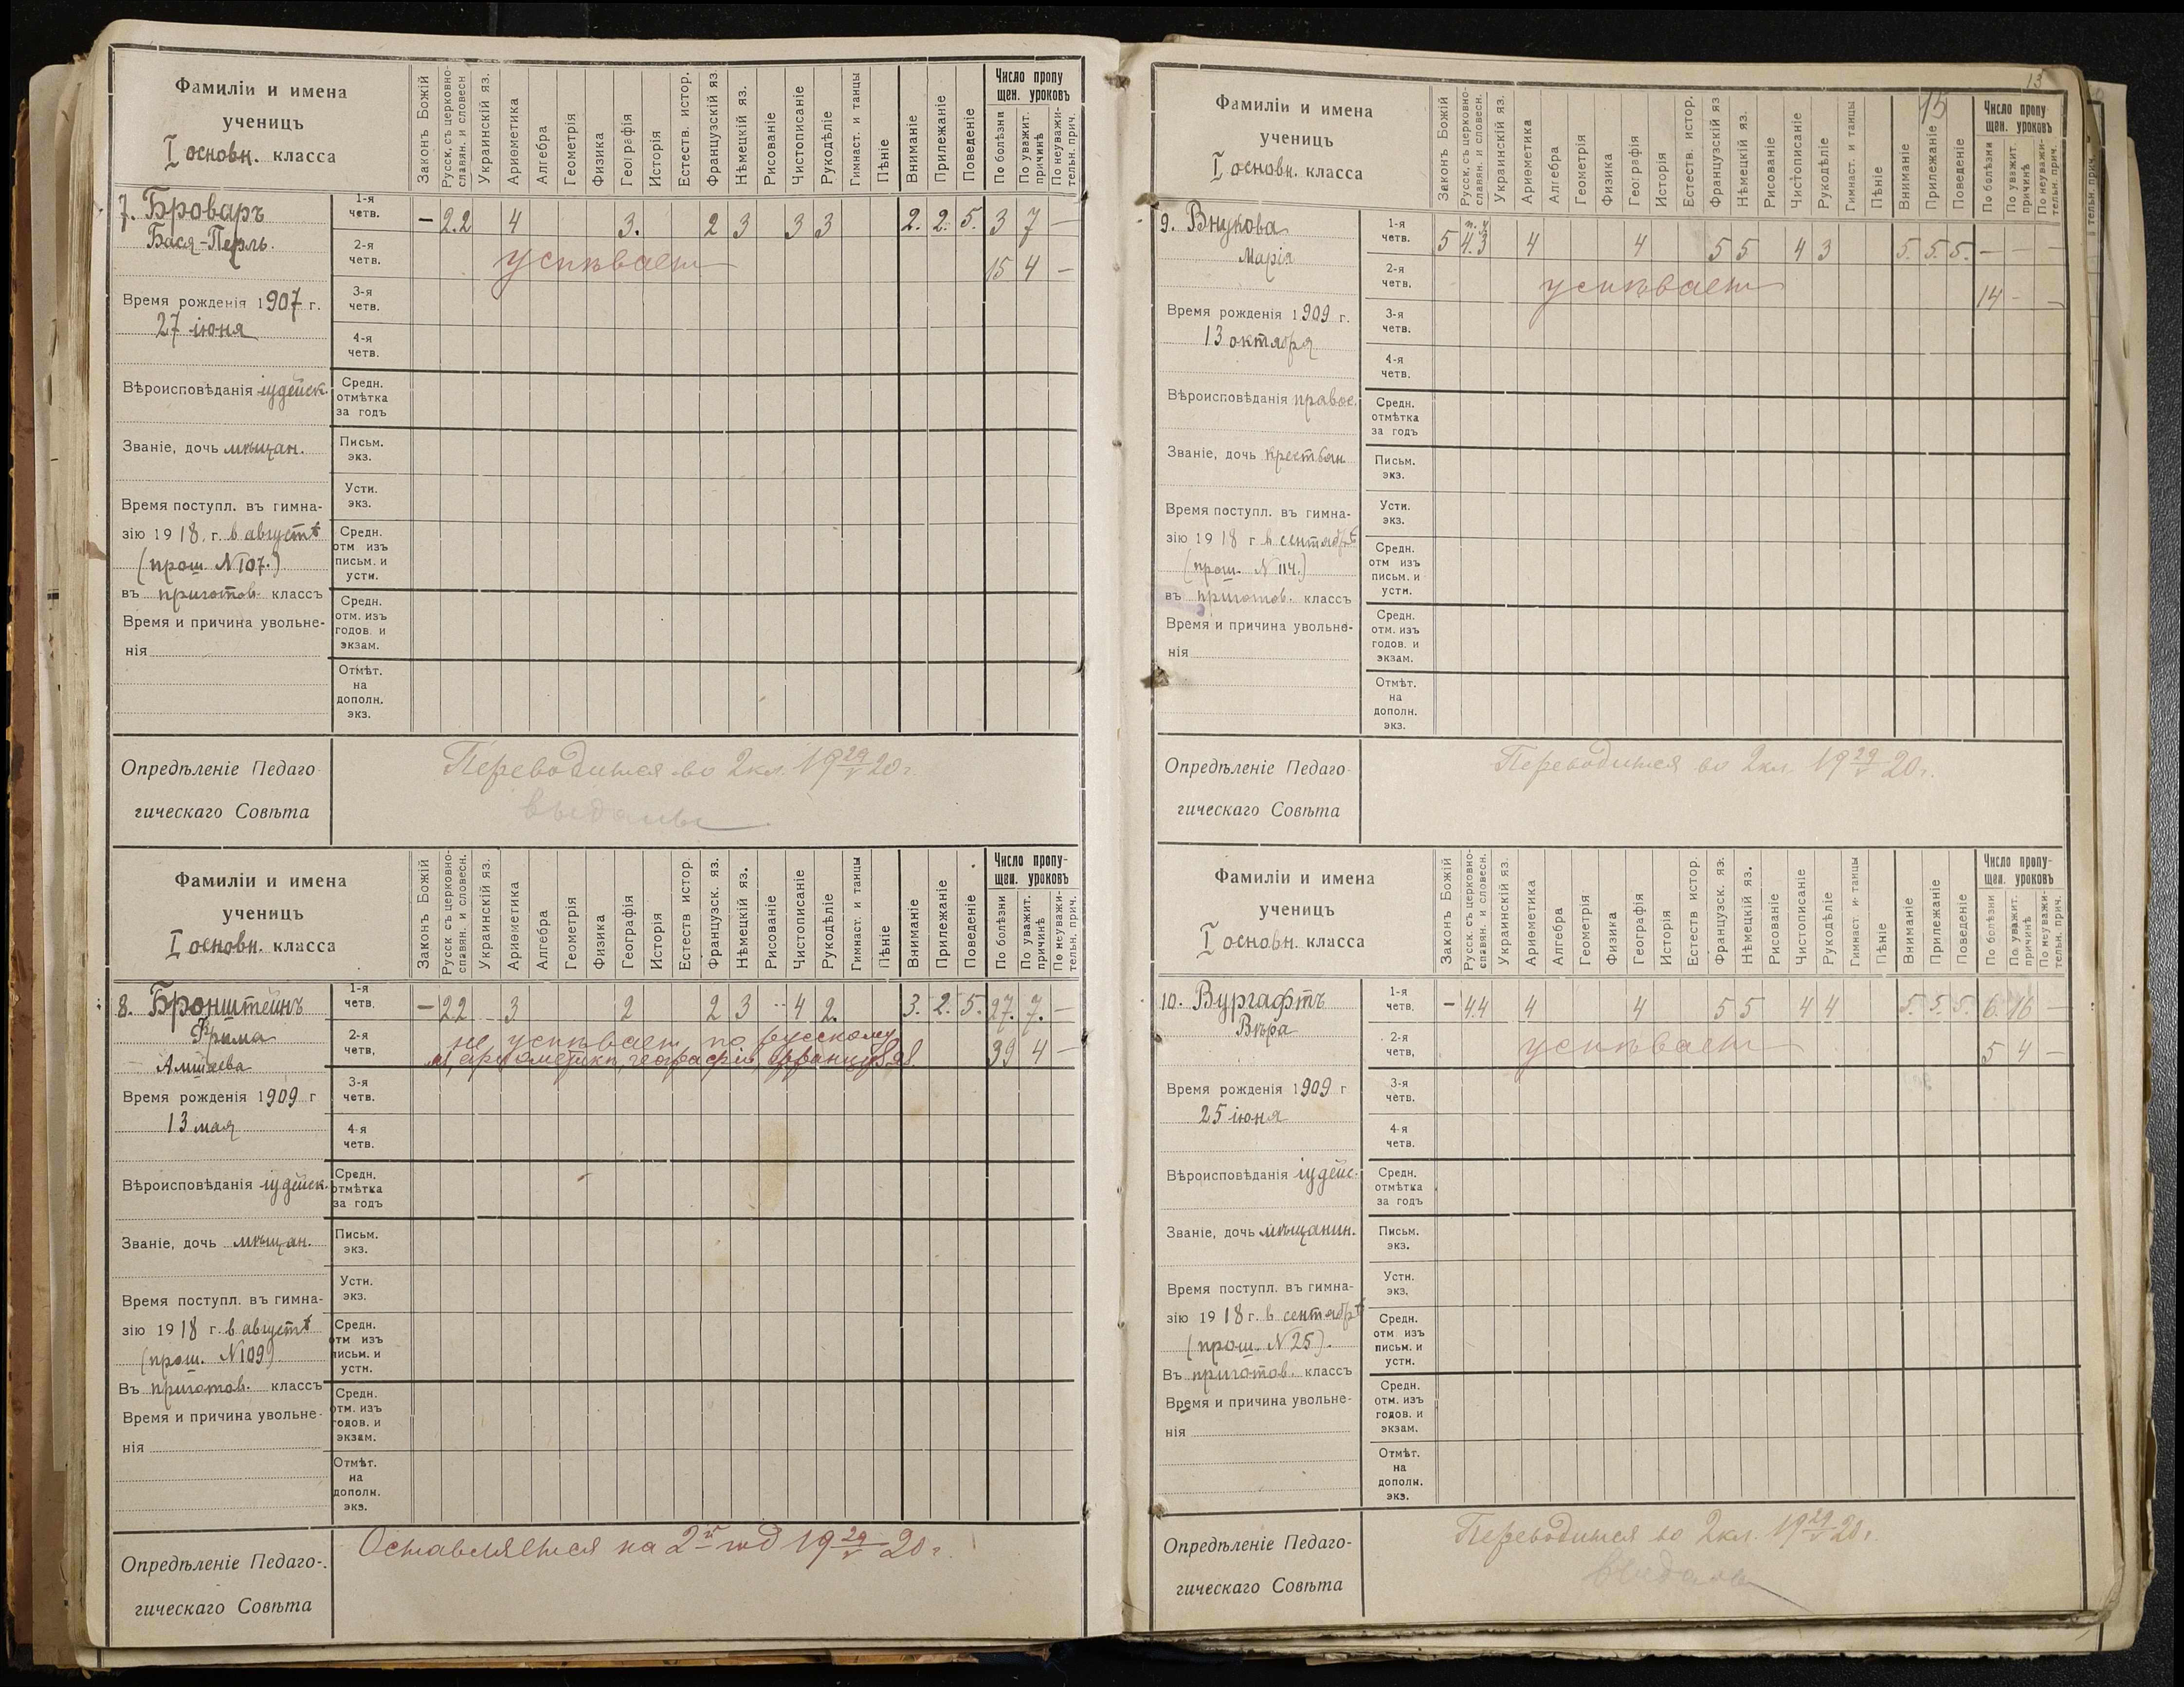 Фамиліи и имена
ученицъ
I основн. класса
Законъ Божій
Русск. съ церковно-
славян. и словесн
Украинскій яз.
Ариѳметика
Алгебра
Геометрія
Физика
Географія
Исторія
Естеств. истор.
Французскій яз.
Нѣмецкій яз.
Рисованіе
Чистописаніе
Рукодѣліе
Гимнаст. и танцы
Пѣніе
Вниманіе
Прилежаніе
Поведеніе
Число пропу
щен. уроковъ
По болѣзни
По уважит.
причинѣ
По неуважи-
тельн. прич.
7. Броваръ
Бася-Перль.
1-я
четв.
– 2.2 4 3. 2 3 3 3 2. 2. 5. 3 7 –
2-я
четв.
успѣваетъ 15 4 –
Время рожденія 1907 г.
27 іюня
3-я
четв.
4-я
четв.
Вѣроисповѣданія іудейск.
Средн.
отмѣтка
за годъ
Званіе, дочь мѣщан.
Письм.
экз.
Время поступл. въ гимна-
зію 1918. г. в августѣ
(прош. N 107.)
въ приготов. классъ
Время и причина увольне-
нія
Устн.
экз.
Средн.
отм изъ
письм. и
устн.
Средн.
отм. изъ
годов. и
экзам.
Отмѣт.
на
дополн.
экз.
Опредѣленіе Педаго-
гическаго Совѣта
Переводится во 2 кл. 19 29/V 20 г.
выданы
Фамиліи и имена
ученицъ
I основн. класса
Законъ Божій
Русск. съ церковно-
славян. и словесн.
Украинскій яз.
Ариѳметика
Алгебра
Геометрія
Физика
Географія
Исторія
Естеств истор.
Французск. яз.
Нѣмецкій яз.
Рисованіе
Чистописаніе
Рукодѣліе
Гимнаст. и танцы
Пѣніе
Вниманіе
Прилежаніе
Поведеніе
Число пропу-
щен. уроковъ
По болѣзни
По уважит.
причинѣ
По неуважи-
тельн. прич.
8. Бронштейнъ
Амшеева
1-я
четв.
– 22 3 2 2 3 4 2. 3. 2. 5. 27. 7. –
2-я
четв,
не успѣвает по русскому
яз, арифметикѣ, географіи, француз. яз.
39 4 –
Время рожденія 1909 г
13 мая
3-я
четв.
4-я
четв.
Вѣроисповѣданія іудейск.
Средн.
отмѣтка
за годъ
Званіе, дочь мѣщан.
Письм.
экз.
Время поступл. въ гимна-
зію 1918 г. в августѣ
(прош. N 109)
Въ приготов. классъ
Время и причина увольне-
нія
Устн.
экз.
Средн.
отм изъ
письм. и
устн.
Средн.
отм. изъ
годов. и
экзам.
Отмѣт.
на
дополн.
экз.
Опредѣленіе Педаго-
гическаго Совѣта
Оставляется на 2й год 19 29/V 20 г.
13
15
Фамиліи и имена
ученицъ
I основн. класса
Законъ Божій
Русск. съ церковно-
славян. и словесн.
Украинскій яз.
Ариѳметика
Алгебра
Геометрія
Физика
Географія
Исторія
Естеств. истор.
Французскій яз
Нѣмецкій яз.
Рисованіе
Чистописаніе
Рукодѣліе
Гимнаст. и танцы
Пѣніе
Вниманіе
Прилежаніе
Поведеніе
Число пропу
щен. уроковъ
По болѣзни
По уважит.
причинѣ
По неуважи-
тельн. прич.
тельн. прич.
9. Внукова
Марія
1-я
четв.
5 4.3 4 4 5 5 4 3 5. 5. 5. – – –
2-я
четв,
успѣваетъ 14 – –
Время рожденія 1909 г.
13 октября
3-я
четв.
4-я
четв.
Вѣроисповѣданія правос.
Средн.
отмѣтка
за годъ
Званіе, дочь крестьян
Письм.
экз.
Время поступл. въ гимна-
зію 1918 г в сентябрѣ
(прош. N 114.)
въ приготов. классъ
Время и причина увольне-
нія
Устн.
экз.
Средн.
отм изъ
письм. и
устн.
Средн.
отм. изъ
годов. и
экзам.
Отмѣт.
на
дополн.
экз.
Опредѣленіе Педаго-
гическаго Совѣта
Переводится во 2 кл. 19 29/V 20 г.
Фамиліи и имена
ученицъ
I основн. класса
Законъ Божій
Русск. съ церковно-
славян. и словесн.
Украинскій яз.
Ариѳметика
Алгебра
Геометрія
Физика
Географія
Исторія
Естеств истор.
Французск. яз.
Нѣмецкій яз.
Рисованіе
Чистописаніе
Рукодѣліе
Гимнаст. и танцы
Пѣніе
Вниманіе
Прилежаніе
Поведеніе
Число пропу-
щен. уроковъ
По болѣзни
По уважит.
причинѣ
По неуважи-
тельн. прич.
10. Вургафтъ
Вѣра
1-я
четв.
– 44 4 4 5 5 4 4 5. 5. 5. 6. 16 –
2-я
четв,
успѣваетъ 5 4 –
Время рожденія 1909 г
25 іюня
3-я
четв.
4-я
четв.
Вѣроисповѣданія іудейс.
Средн.
отмѣтка
за годъ
Званіе, дочь мѣщанин.
Письм.
экз.
Время поступл. въ гимна-
зію 1918 г. в сентябрѣ
(прош. N 25).
Въ приготов. классъ
Время и причина увольне-
нія
Устн.
экз.
Средн.
отм. изъ
письм. и
устн.
Средн.
отм. изъ
годов. и
экзам.
Отмѣт.
на
дополн.
экз.
Опредѣленіе Педаго-
гическаго Совѣта
Переводится во 2 кл. 19 29/V 20 г.
выданы